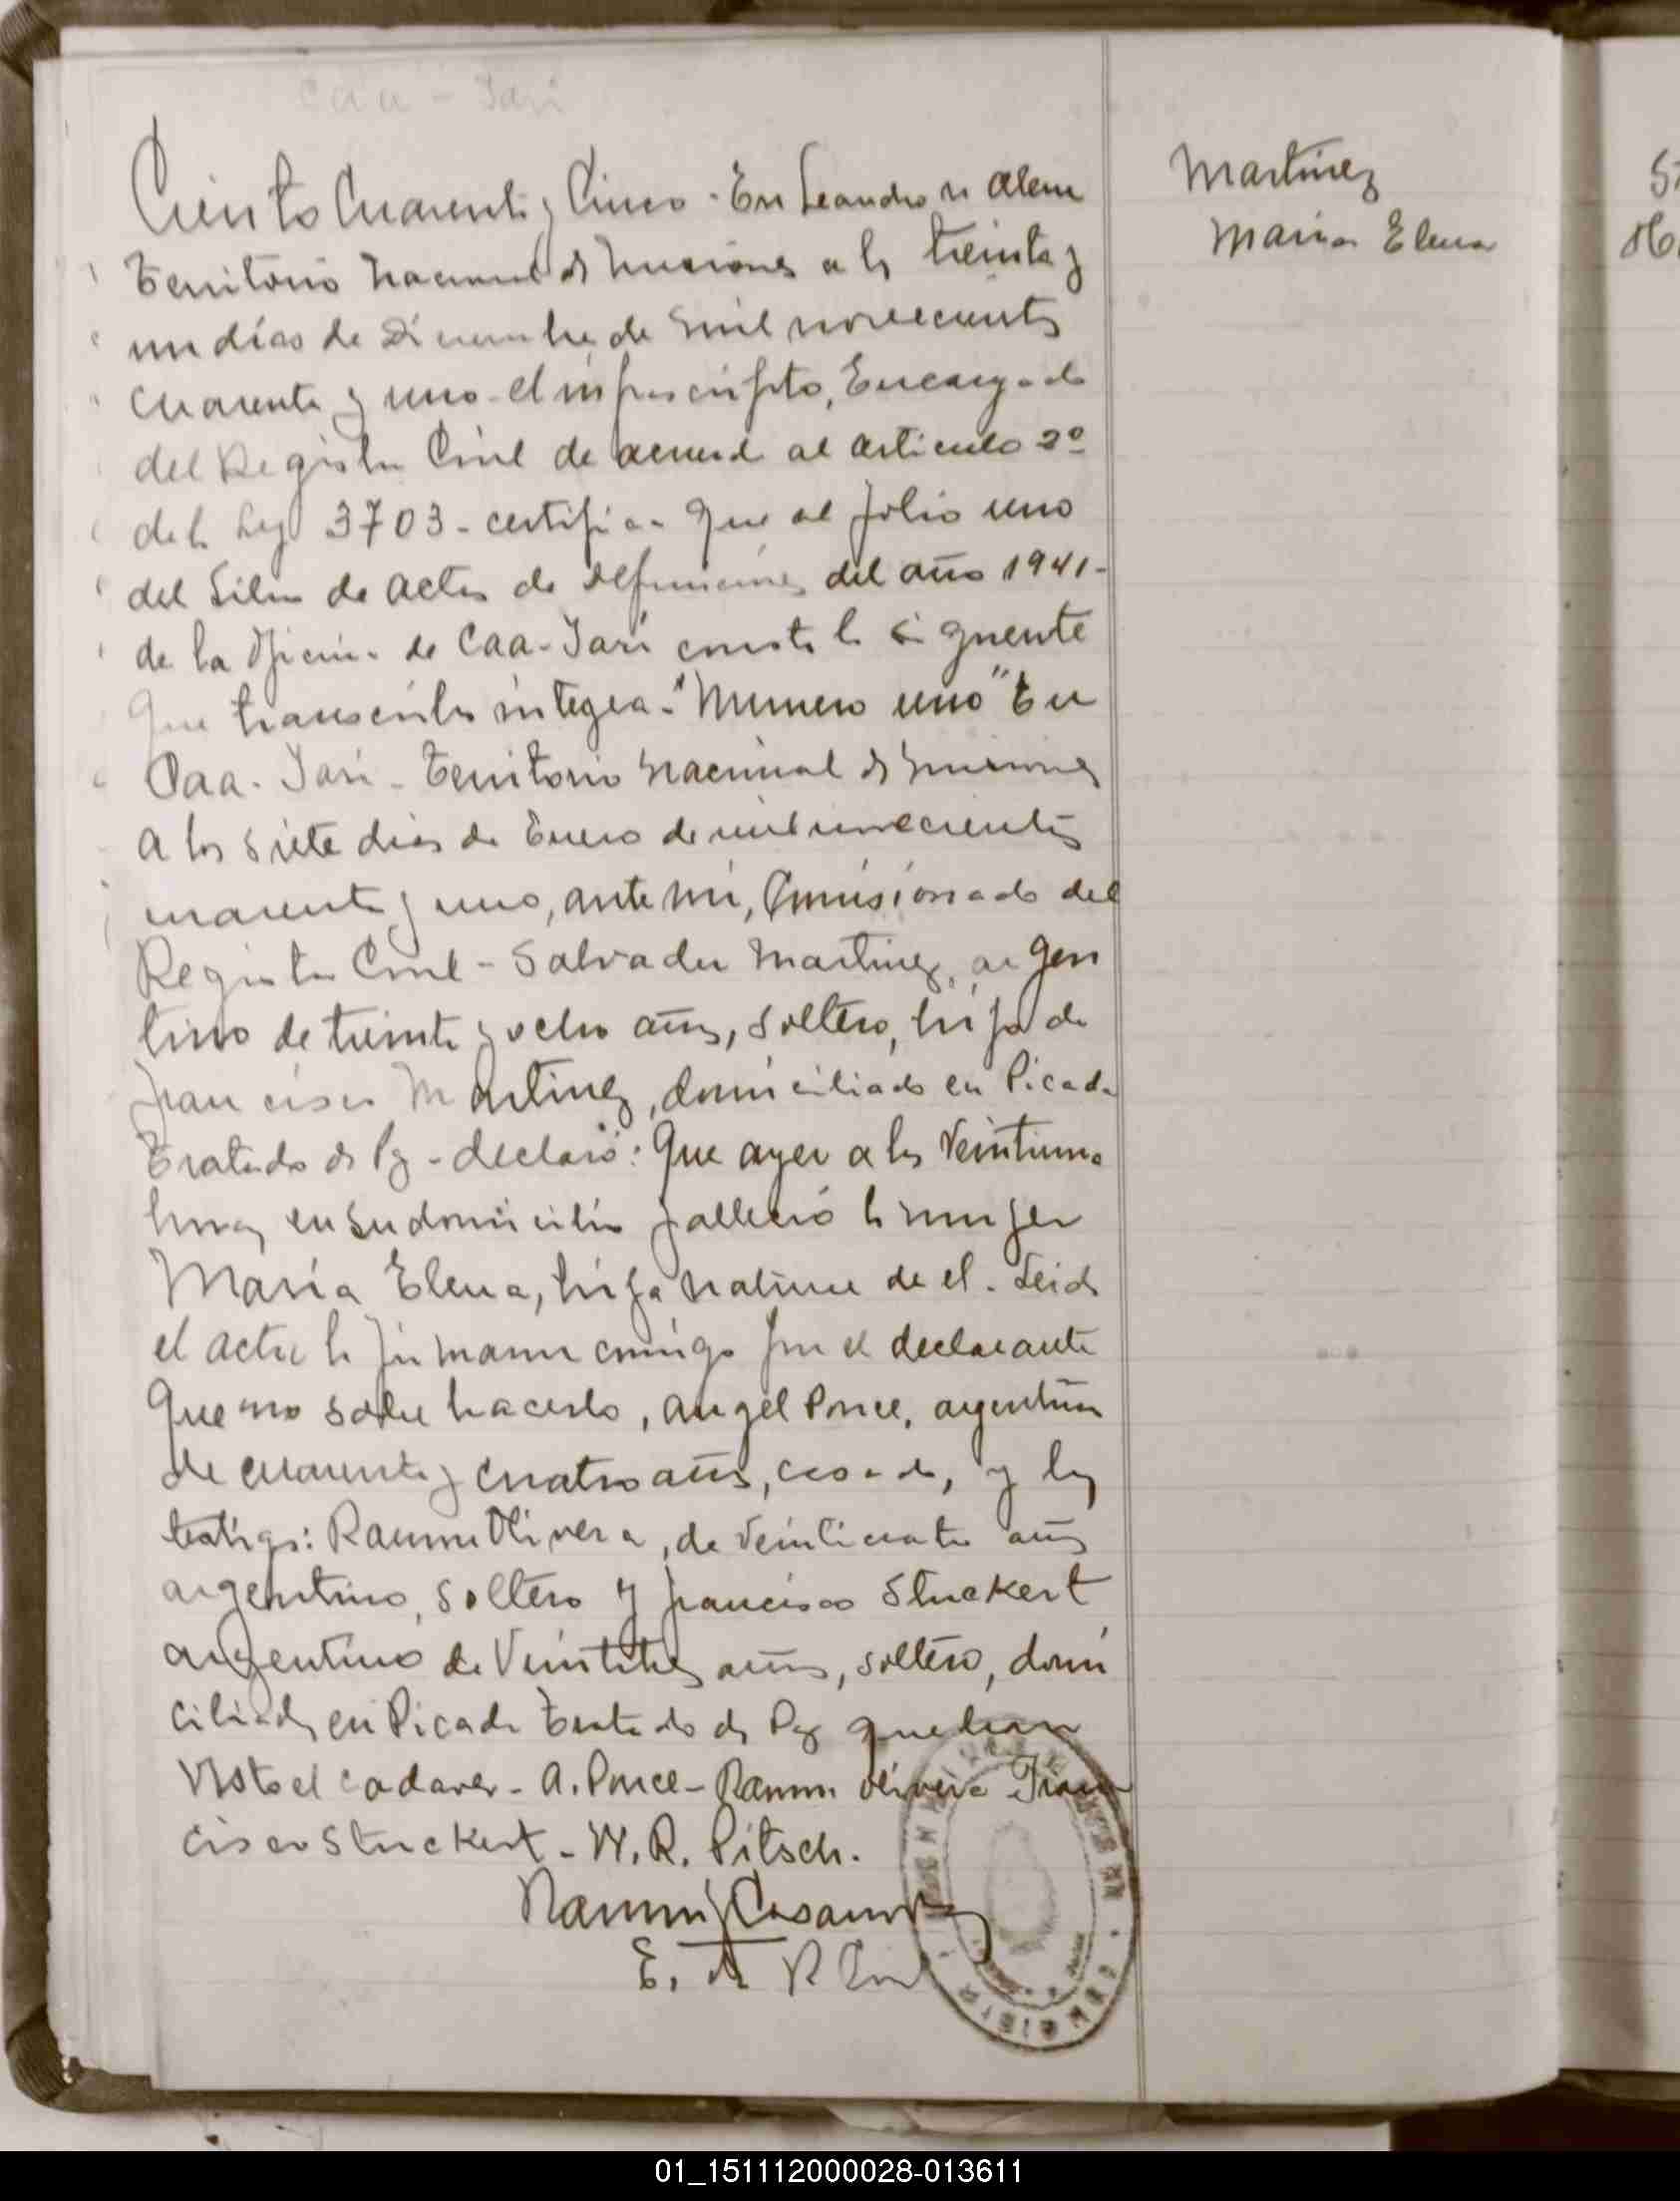 Caa-Yarí
Ciento Cuarenta y Cinco - En Leandro N Alem
Territorio Nacional de Misiones a los treinta y
un días de Diciembre de mil novecientos
cuarenta y uno - el infrascripto, Encargado
del Registro Civil de acuerdo al artículo 2º
de la Ley 3703 - certifica que al folio uno
del Libro de actas de defunciones del año 1941 -
de la Oficina de Caa-Yarí consta lo siguiente
que transcribo integra - "Numero uno" En
Caa-Yarí - Territorio Nacional de Misiones
a los siete días de Enero de mil novecientos
cuarenta y uno, ante mi, Comisionado del
Registro Civil - Salvador Martinez, argen
tino de treinta y ocho años, soltero, hijo de
Francisco Martinez, domiciliado en Picada
Tratado de Paz - declaró: Que ayer a las veintiuna
horas en su domicilio falleció la mujer
María Elena, hija natural de el. Leida
el acta la firmaron conmigo por el declarante
que no sabe hacerlo, Angel Ponce, argentino
de cuarenta y cuatro años, casado, y los
testigos: Ramon Olivera, de veinticuatro años
argentino, soltero y Francisco Stuckert
argentino de Veintitres años, soltero, domi
ciliados en Picada Tratado de Paz que han
Visto el cadaver - A. Ponce - Ramon Olivera - Fran
cisco Stuckert - W. R. Pitsch.
E. de R Civil
Martinez
Maria Elena
01_151112000028-013611